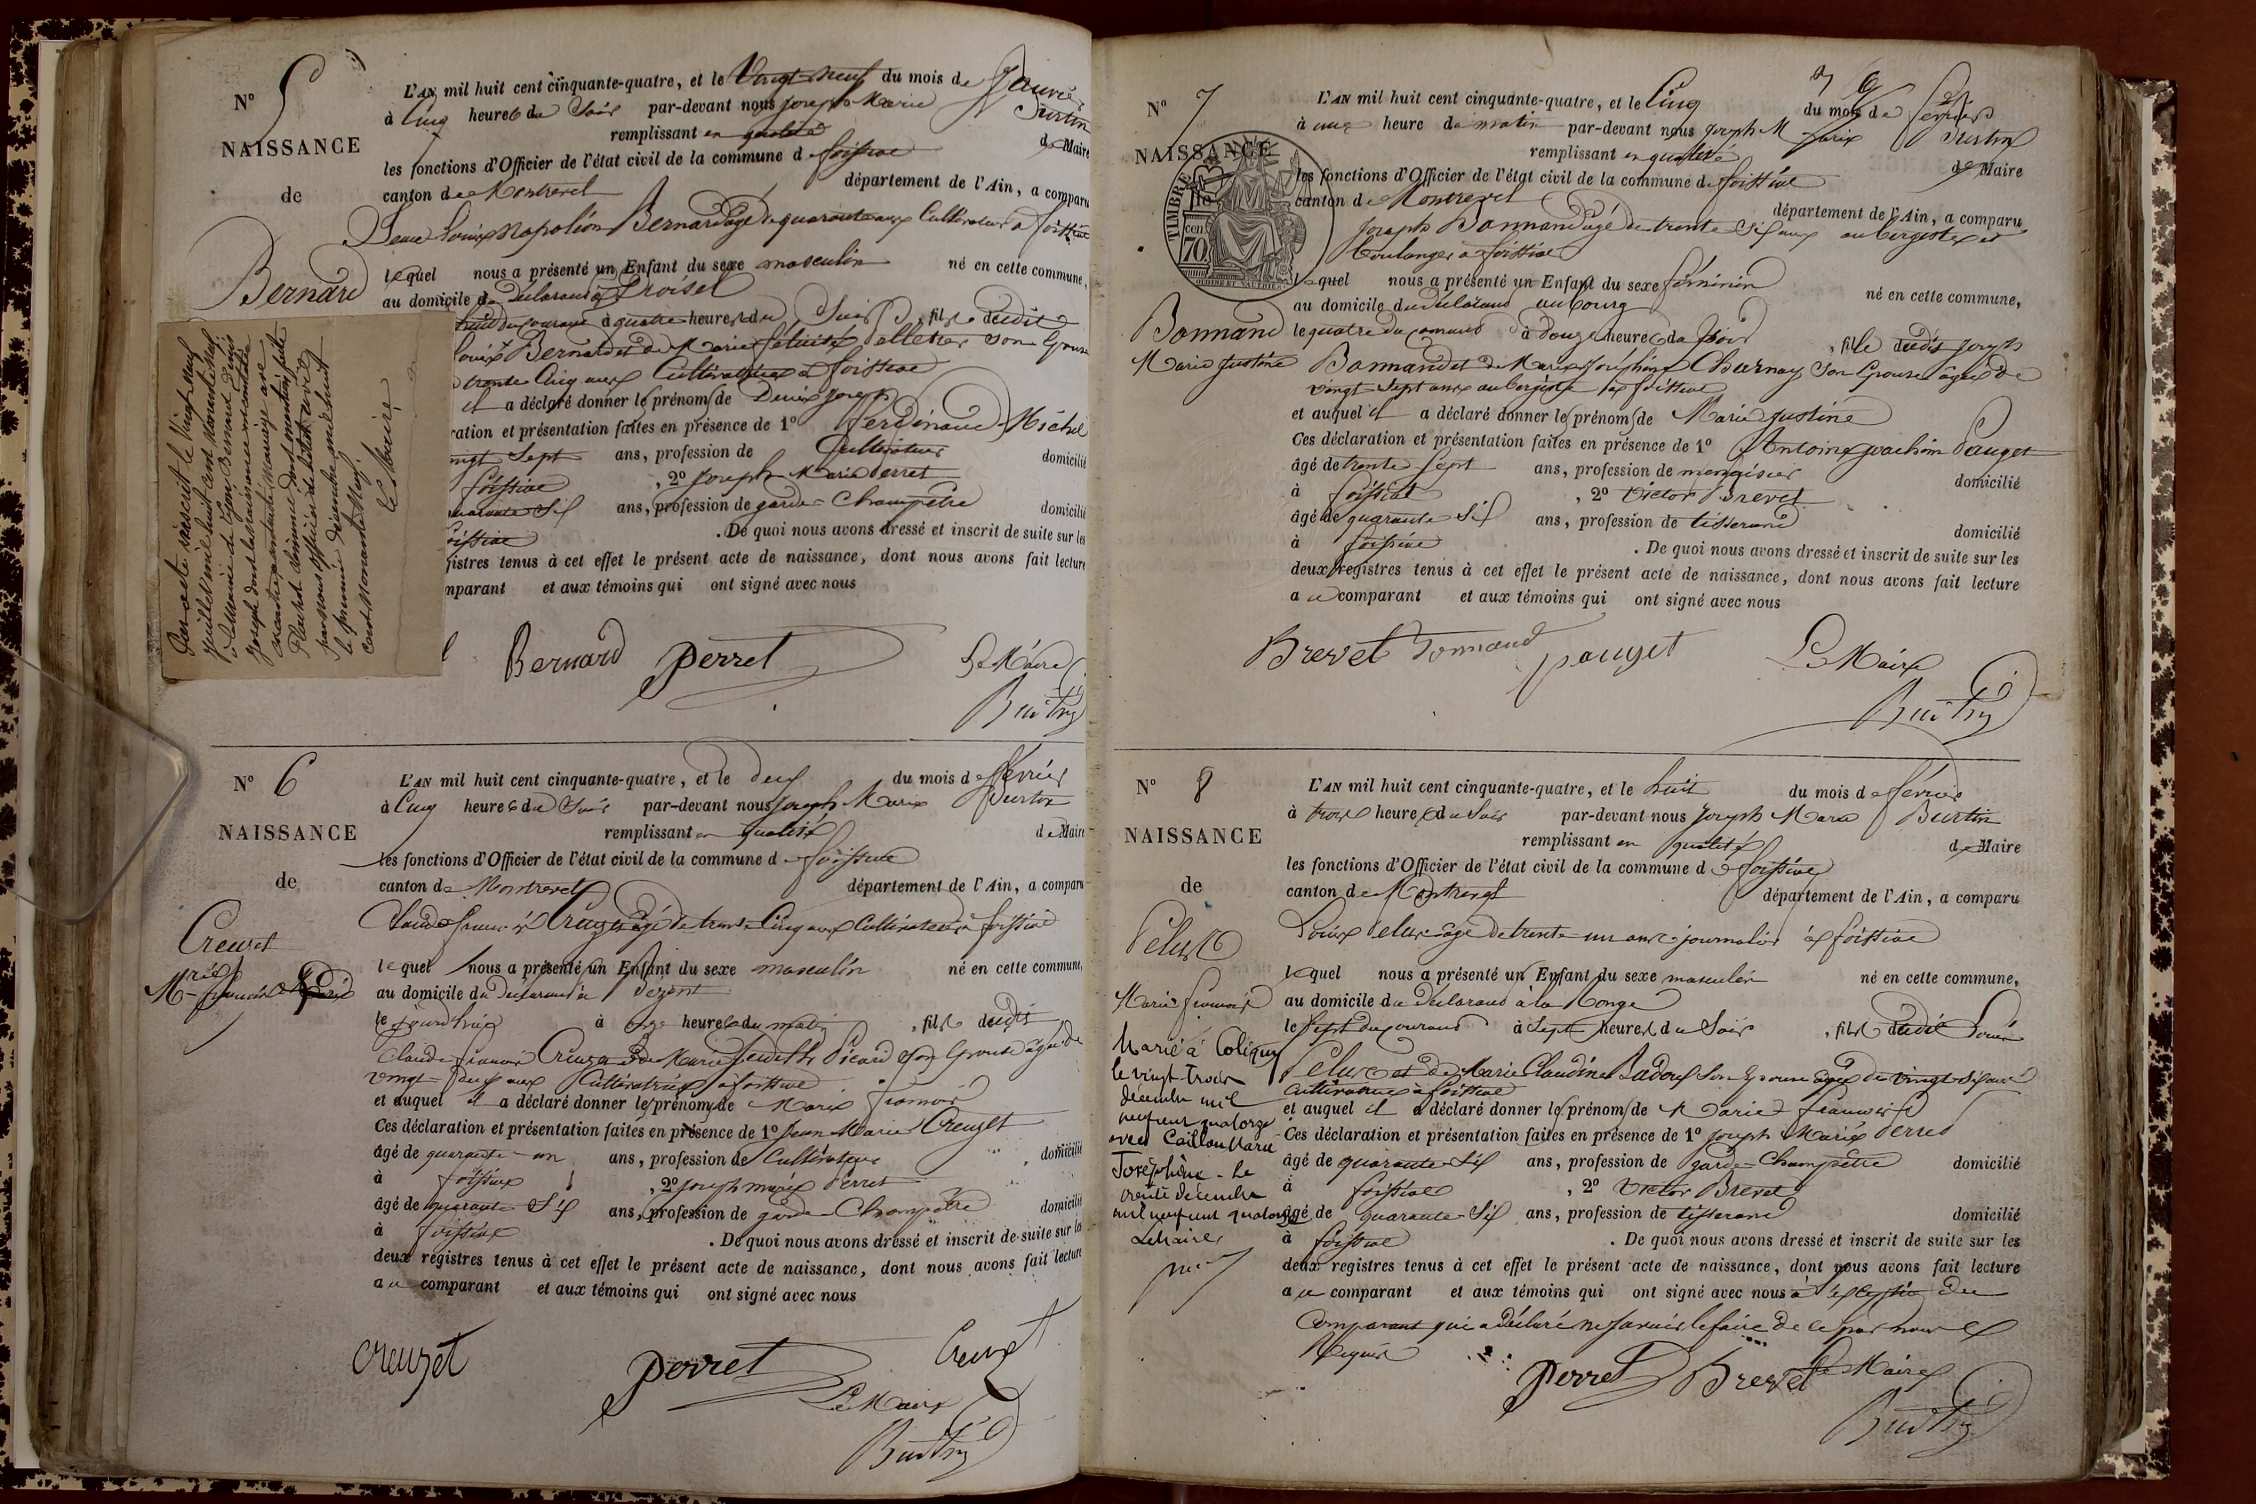 N° 5
NAISSANCE
de
Bernard
L'AN mil huit cent cinquante-quatre, et le Vingt neuf du mois de Janvier
à Cinq heures du Soir par-devant nous Joseph Marie Burtin
remplissant en qualité de Maire
les fonctions d'Officier de l'état civil de la commune de foissiat
canton de Montrevel département de l'Ain, a comparu
Louis Napoléon Bernard âgé de quarante ans Cultivateur à foissiat
lequel nous a présenté un Enfant du sexe masculin né en cette commune,
au domicile du Déclarant à
huit du courant à quatre heures du Soir, fils dudit
Louis Bernard et de Marie félicité Pelletier son Epouse
trente Cinq ans Cultivatrice à foissiat
il a déclaré donner les prénoms de Denis Joseph
ration et présentation faites en présence de 1° Ferdinand Michel
vingt Sept ans, profession de Cultivateur domicilié
foissiat, 2° Joseph Marie Perret
quarante Six ans, profession de garde-Champêtre domicilié
foissiat. De quoi nous avons dressé et inscrit de suite sur les
gistres tenus à cet effet le présent acte de naissance, dont nous avons fait lecture
mparant et aux témoins qui ont signé avec nous
Bernard Perret Le Maire
Burtin
Par acte inscrit le Vingt neuf
juillet mil huit cent
à la Mairie de Lyon, Bernard Denis
Joseph dont la naissance est
a contracté mariage avec
dont mention faite
par nous officier de l'état civil
le premier décembre mil huit
cent
Le Maire
N° 6
NAISSANCE
de
Creuzet
Marie françois
L'AN mil huit cent cinquante-quatre, et le deux du mois de février
à Cinq heures du Soir par-devant nous Joseph Marie Burtin
remplissant en qualité de Maire
les fonctions d'Officier de l'état civil de la commune de foissiat
canton de Montrevel département de l'Ain, a comparu
Claude françois Creuzet âgé de trente Cinq ans Cultivateur à foissiat
lequel nous a présenté un Enfant du sexe masculin né en cette commune,
au domicile du Déclarant à
le jourd'hui à onze heures du matin, fils dudit
Claude françois Creuzet et de Marie Picard son Epouse âgée de
vingt deux ans Cultivatrice à foissiat
et auquel il a déclaré donner les prénoms de Marie françois
Ces déclaration et présentation faites en présence de 1° Jean Marie Creuzet
âgé de quarante-un ans, profession de Cultivateur domicilié
à foissiat, 2° Joseph Marie Perret
âgé de quarante Six ans, profession de garde-Champêtre domicilié
à foissiat. De quoi nous avons dressé et inscrit de suite sur les
deux registres tenus à cet effet le présent acte de naissance, dont nous avons fait lecture
au comparant et aux témoins qui ont signé avec nous
Creuzet Perret Creuzet
Le Maire
Burtin
N° 7
NAISSANCE
TIMBRE
cen 70
Bonnand
Marie Justine
L'AN mil huit cent cinquante-quatre, et le Cinq du mois de février
à onze heure du matin par-devant nous Joseph Marie Burtin
remplissant en qualité de Maire
les fonctions d'Officier de l'état civil de la commune de foissiat
canton de Montrevel département de l'Ain, a comparu
Joseph Bonnand âgé de trente-Six ans aubergiste et
boulanger à foissiat
lequel nous a présenté un Enfant du sexe féminin né en cette commune,
au domicile du Déclarant au bourg
le quatre du courant à douze heures du Soir, fille dudit Joseph
Bonnand et de Marie Joséphine Charnay son Epouse âgée de
vingt-Sept ans aubergiste à foissiat
et auquel il a déclaré donner les prénoms de Marie Justine
Ces déclaration et présentation faites en présence de 1° Antoine Joachim Pauget
âgé de trente Sept ans, profession de menuisier domicilié
à foissiat, 2° Victor Brevet
âgé de quarante Six ans, profession de tisserand domicilié
à foissiat. De quoi nous avons dressé et inscrit de suite sur les
deux registres tenus à cet effet le présent acte de naissance, dont nous avons fait lecture
au comparant et aux témoins qui ont signé avec nous
Brevet Bonnand Pauget Le Maire
Burtin
N° 8
NAISSANCE
de
Pelux
Marie françois
Marié à Coligny
le vingt-trois
décembre mil
neuf cent quatorze
avec Caillou Marie
Joséphine. Le
trente décembre
mil neuf cent quatorze
Le Maire
L'AN mil huit cent cinquante-quatre, et le huit du mois de février
à trois heures du Soir par-devant nous Joseph Marie Burtin
remplissant en qualité de Maire
les fonctions d'Officier de l'état civil de la commune de foissiat
canton de Montrevel département de l'Ain, a comparu
Louis Pelux âgé de trente-un ans journalier à foissiat
lequel nous a présenté un Enfant du sexe masculin né en cette commune,
au domicile du Déclarant à la Longe
le Sept du courant à Sept heures du Soir, fils dudit Louis
Pelux et de Marie Claudine Badoux son Epouse âgée de vingt-six ans
Cultivatrice à foissiat
et auquel il a déclaré donner les prénoms de Marie françois
Ces déclaration et présentation faites en présence de 1° Joseph Marie Perret
âgé de quarante Six ans, profession de garde-Champêtre domicilié
à foissiat, 2° Victor Brevet
âgé de quarante-Six ans, profession de tisserand domicilié
à foissiat. De quoi nous avons dressé et inscrit de suite sur les
deux registres tenus à cet effet le présent acte de naissance, dont nous avons fait lecture
au comparant et aux témoins qui ont signé avec nous à l'exception du
Comparant qui a déclaré ne savoir le faire de ce par nous
Requis
Perret Brevet Le Maire
Burtin